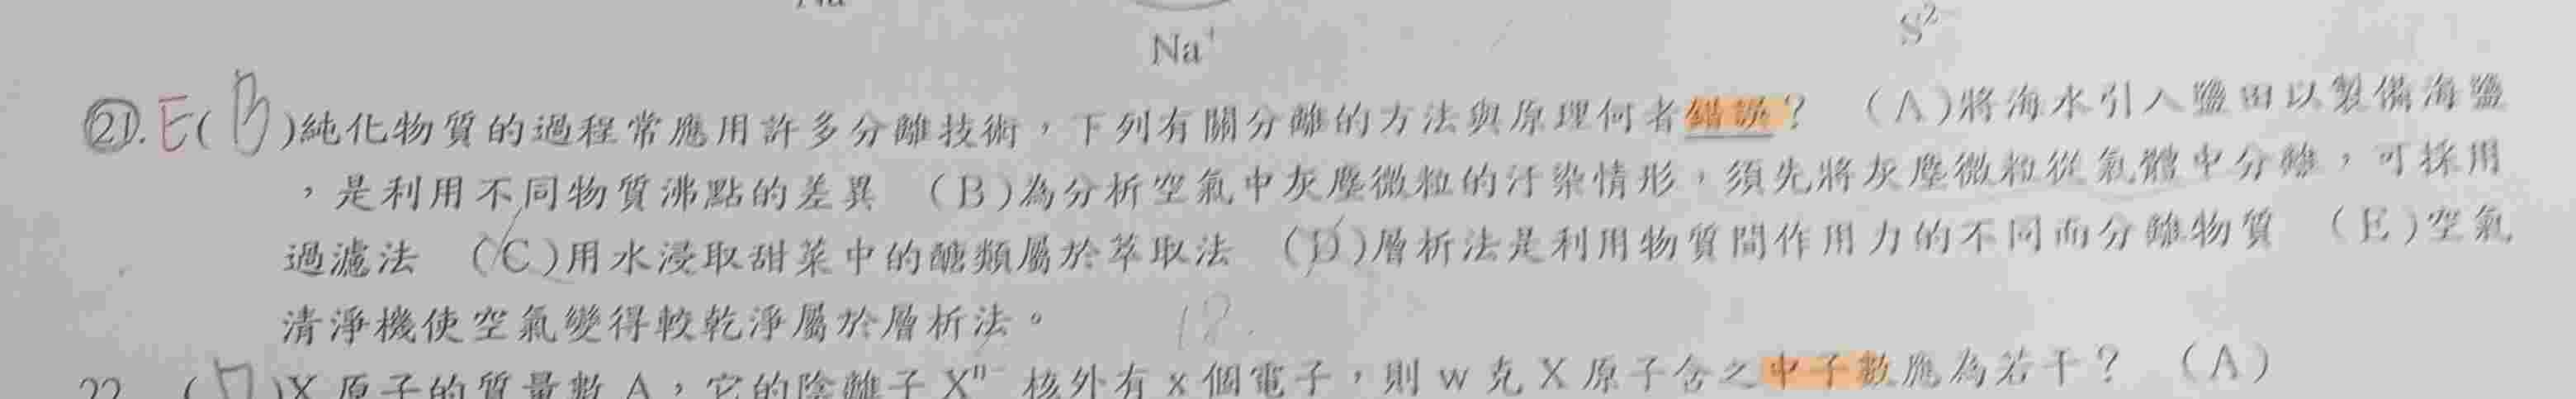 Na⁺
S²⁻
21. E(B)純化物質的過程常應用許多分離技術，下列有關分離的方法與原理何者錯誤？ (A)將海水引入鹽田以製備海鹽
，是利用不同物質沸點的差異 (B)為分析空氣中灰塵微粒的汙染情形，須先將灰塵微粒從氣體中分離，可採用
過濾法 (C)用水浸取甜菜中的醣類屬於萃取法 (D)層析法是利用物質間作用力的不同而分離物質 (E)空氣
清淨機使空氣變得較乾淨屬於層析法。
22. ( )X 原子的質量數 A，它的陰離子 Xⁿ⁻ 核外有 x 個電子，則 w 克 X 原子含之中子數應為若干？ (A)